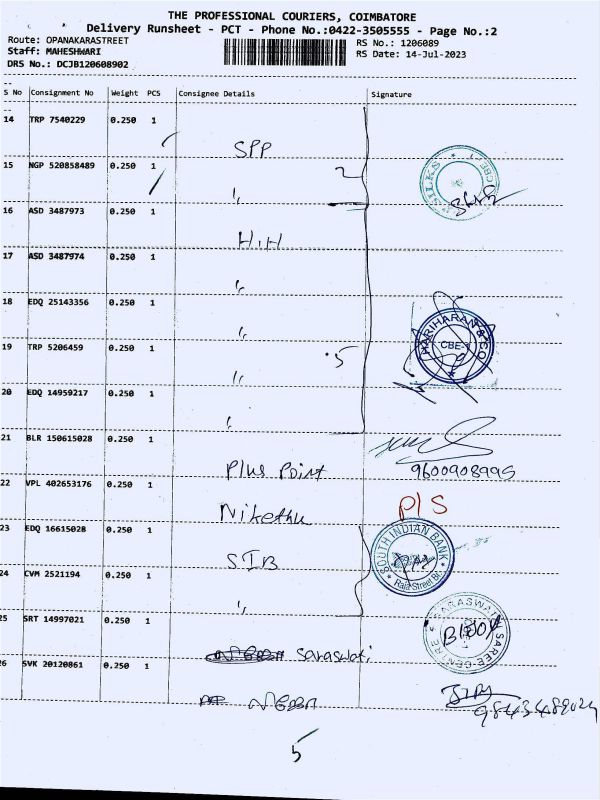 THE PROFESSIONAL COURIERS, COIMBATORE
Delivery Runsheet - PCT - Phone No.:0422-3505555 - Page No.:2
Route: OPANAKARASTREET
Staff: MAHESHWARI
DRS No.: DCJB120608902
RS No.: 1206089
RS Date: 14-Jul-2023
S No Consignment No Weight PCS Consignee Details Signature
14 TRP 7540229 0.250 1
SPP
15 NGP 520858489 0.250 1
2
SILKS
16 ASD 3487973 0.250 1
H.H
17 ASD 3487974 0.250 1
18 EDQ 25143356 0.250 1
HARIHARAN & CO
CBE-1
19 TRP 5206459 0.250 1
5
20 EDQ 14959217 0.250 1
21 BLR 150615028 0.250 1
Plus Point
9600908995
22 VPL 402653176 0.250 1
Nikethu
P/S
23 EDQ 16615028 0.250 1
SIB
SOUTH INDIAN BANK
Raja Street Br.
24 CVM 2521194 0.250 1
25 SRT 14997021 0.250 1
Saraswati
SARASWATI
SAREE-CENTRE
26 SVK 20120861 0.250 1
5